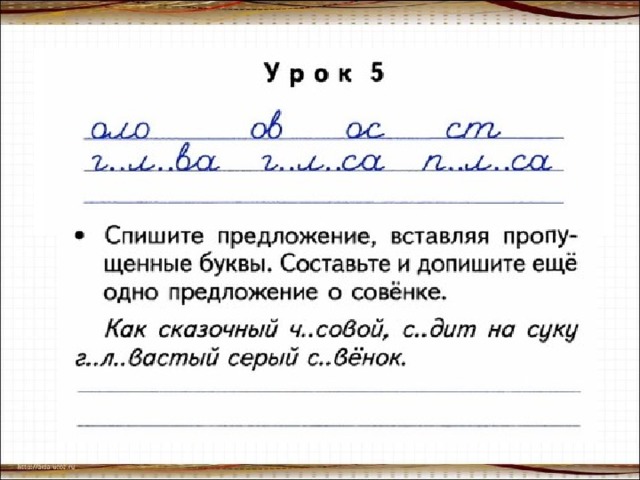 Урок 5
оло ов ос ст
г..л..ва г..л..са п..л..са
• Спишите предложение, вставляя пропу-
щенные буквы. Составьте и допишите ещё
одно предложение о совёнке.
Как сказочный ч..совой, с..дит на суку
г..л..вастый серый с..вёнок.